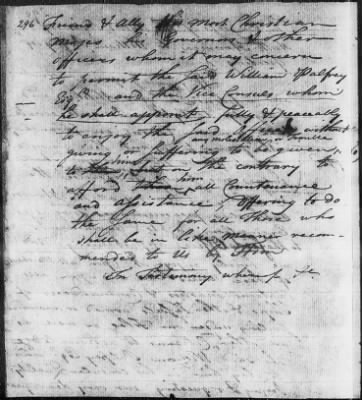 296 Friend & Ally His most Christian
Majes his Governors & other
officers whom it may concern
to permit the said William Palfrey
Esqr and the Vice Consuls, whom
he shall appoint fully & peaceably
to enjoy the said without
giving or suffering to be given,
to them on the contrary to
afford him all Countenance
and assistance, offering to do
the same for all those who
shall be in like manner recom-
mended to us by
In Testimony whereof &c